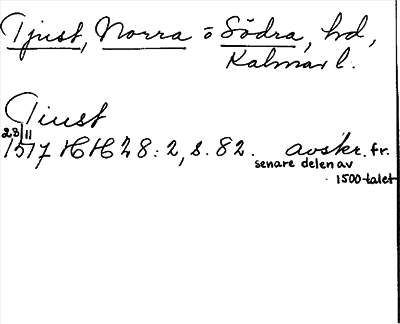 Tjust, Norra o Södra, hd,
Kalmar l.
Tiust
23/11
1517 HH 28:2, s. 82. avskr. fr.
senare delen av
1500-talet